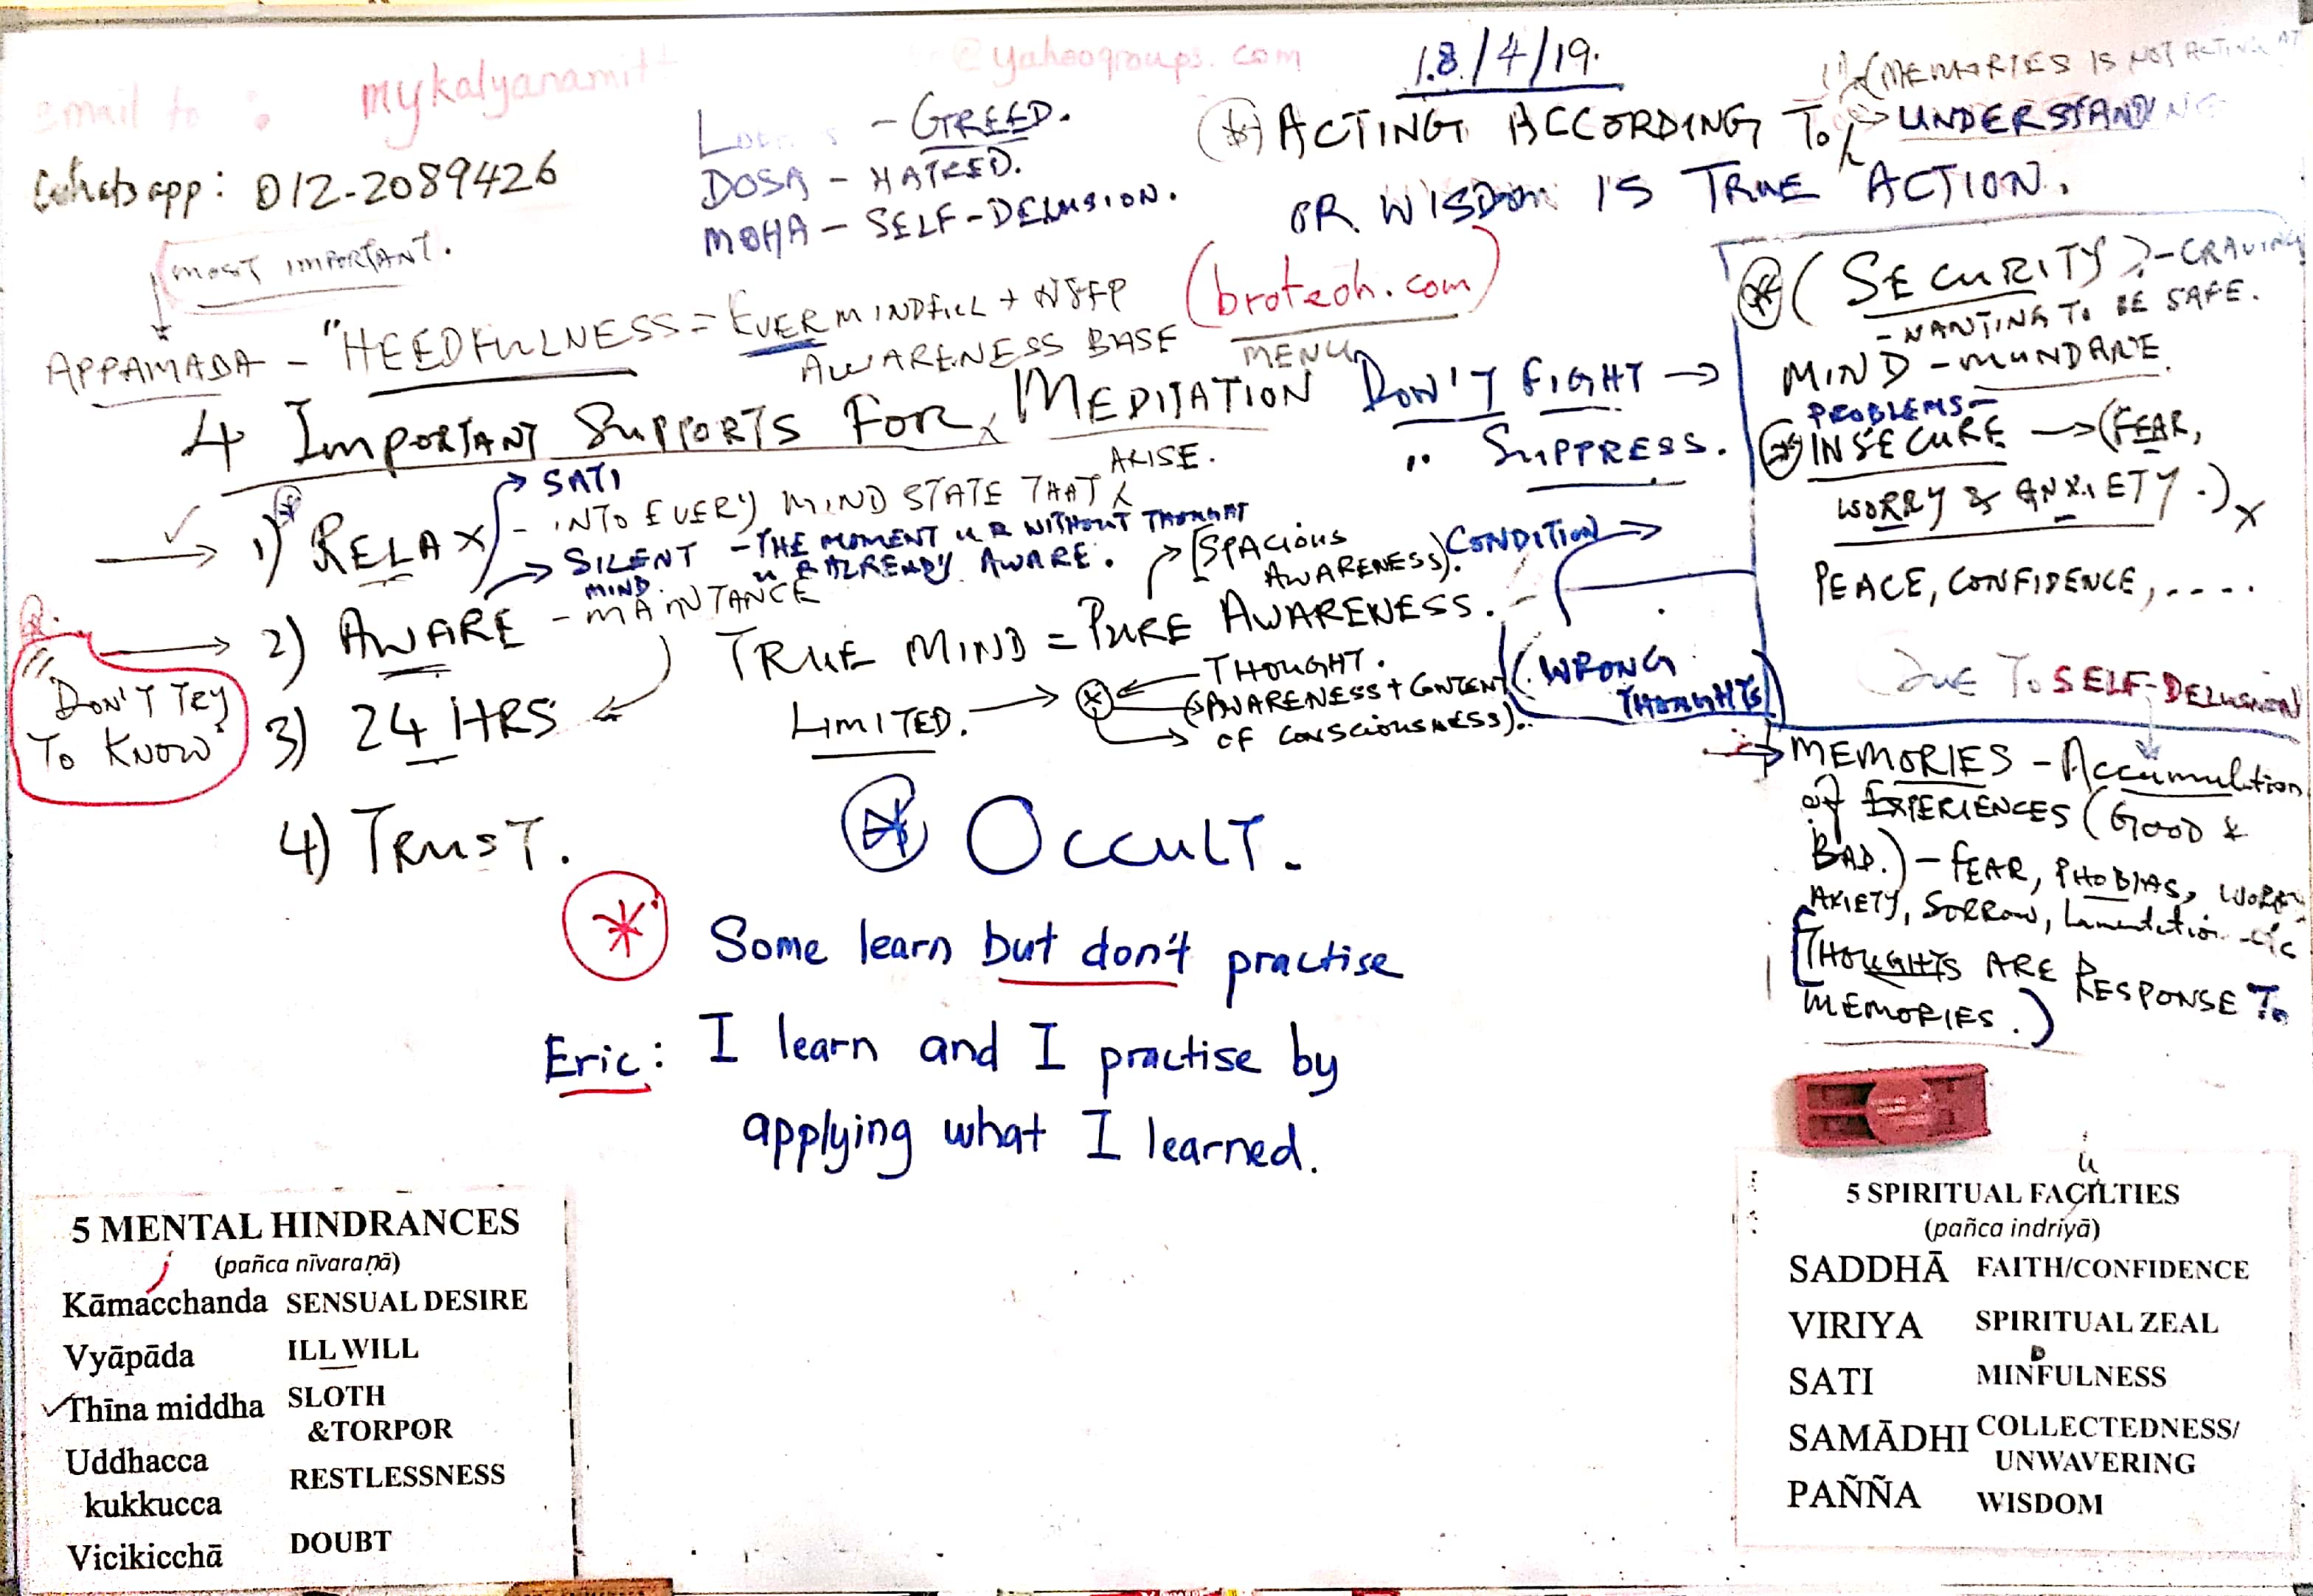 email to : mykalyanamitt
@yahoogroups.com
Whatsapp: 012-2089426
- GREED.
DOSA - HATRED.
MOHA - SELF-DELUSION.
18/4/19.
(MEMORIES IS NOT ACTING AT
ACTING ACCORDING TO UNDERSTANDING
OR WISDOM IS TRUE ACTION.
(MOST IMPORTANT.
APPAMADA - "HEEDFULNESS = EVER MINDFULL +
AWARENESS BASE
(broteoh.com)
MENU
4 IMPORTANT SUPPORTS FOR MEDITATION
DON'T FIGHT →
" SUPPRESS.
1) RELAX - INTO EVERY MIND STATE THAT ARISE.
→ SATI
→ SILENT MIND - THE MOMENT U R WITHOUT THOUGHT
U R ALREADY AWARE.
2) AWARE - MAINTANCE
3) 24 HRS
4) TRUST.
DON'T TRY
TO KNOW
[SPACIOUS
AWARENESS).
TRUE MIND = PURE AWARENESS.
LIMITED. →
THOUGHT.
(AWARENESS + CONTENT
OF CONSCIOUSNESS).
CONDITION →
(WRONG
THOUGHTS)
(SECURITY) - CRAVING
- WANTING TO BE SAFE.
MIND - MUNDANE
PROBLEMS -
INSECURE → (FEAR,
WORRY & ANXIETY.)
PEACE, CONFIDENCE, ....
(DUE TO SELF-DELUSION
→ MEMORIES - Accumulation
of EXPERIENCES (GOOD &
BAD.) - FEAR, PHOBIAS, WORRY
AXIETY, SORROW, Lamentation etc
[THOUGHTS ARE RESPONSE TO
MEMORIES.)
OCCULT.
Some learn but don't practise
Eric: I learn and I practise by
applying what I learned.
5 MENTAL HINDRANCES
(pañca nīvaraṇā)
Kāmacchanda SENSUAL DESIRE
Vyāpāda ILL WILL
Thīna middha SLOTH
&TORPOR
Uddhacca
kukkucca RESTLESSNESS
Vicikicchā DOUBT
5 SPIRITUAL FACILTIES
(pañca indriyā)
SADDHĀ FAITH/CONFIDENCE
VIRIYA SPIRITUAL ZEAL
SATI MINDFULNESS
SAMĀDHI COLLECTEDNESS/
UNWAVERING
PAÑÑA WISDOM